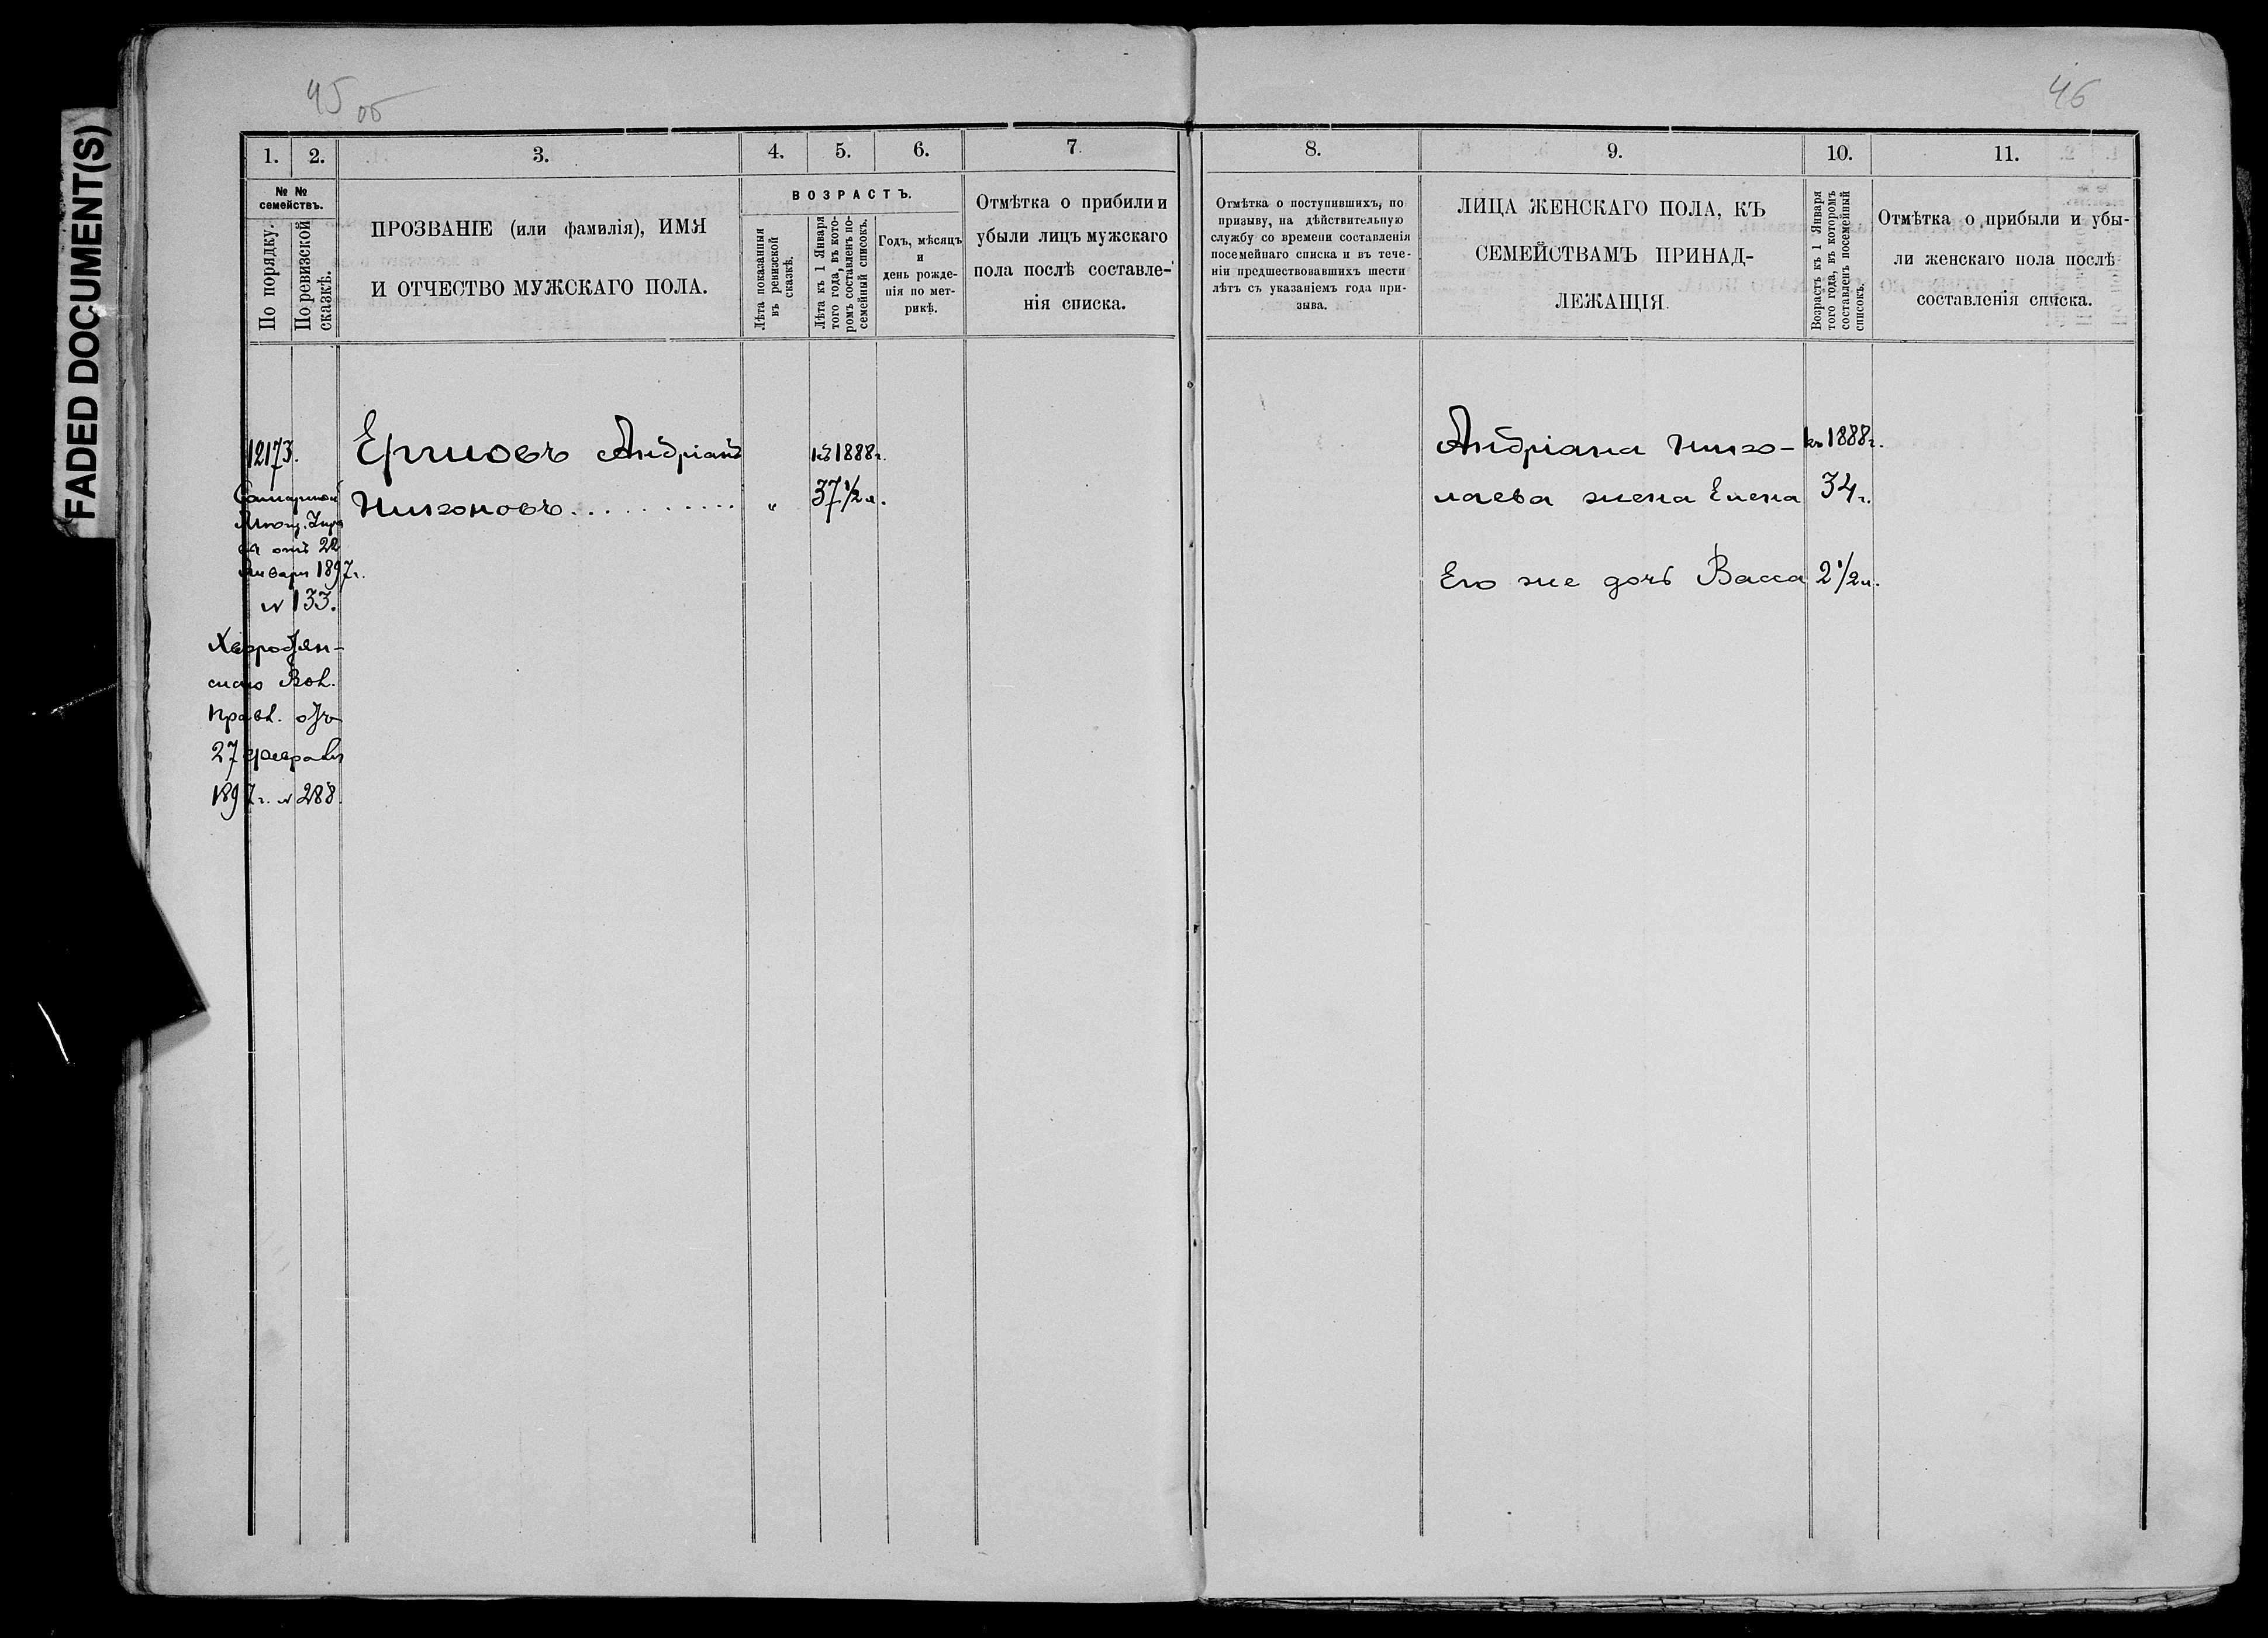 FADED DOCUMENT(S)
45 об
46
1. 2. 3. 4. 5. 6. 7 8. 9. 10. 11.
№ №
семействъ.
По порядку.
По ревизской
сказкѣ.
ПРОЗВАНІЕ (или фамилія), ИМЯ
И ОТЧЕСТВО МУЖСКАГО ПОЛА.
ВОЗРАСТЪ.
Лѣта показанныя
въ ревизской
сказкѣ.
Лѣта къ 1 Января
того года, въ кото-
ромъ составленъ по-
семейный списокъ.
Годъ, мѣсяцъ
и
день рожде-
нія по мет-
рикѣ.
Отмѣтка о прибили и
убыли лицъ мужскаго
пола послѣ составле-
нія списка.
Отмѣтка о поступившихъ, по
призыву, на дѣйствительную
службу со времени составленія
посемейнаго списка и въ тече-
ніи предшествовавшихъ шести
лѣтъ съ указаніемъ года при-
зыва.
ЛИЦА ЖЕНСКАГО ПОЛА, КЪ
СЕМЕЙСТВАМЪ ПРИНАД-
ЛЕЖАЩІЯ.
Возрастъ къ 1 Января
того года, въ которомъ
составленъ посемейный
списокъ.
Отмѣтка о прибыли и убы-
ли женскаго пола послѣ
составленія списка.
12173.
отъ 22
Января 1897 г.
№ 133.
Вол.
Правл. отъ
27 февраля
1897 г. № 288.
Андріанъ
къ 1888 г.
„ 37 1/2 л.
Андріана Нико-
лаева жена Елена
къ 1888 г.
34 г.
Его же дочь Васса 2 1/2 л.